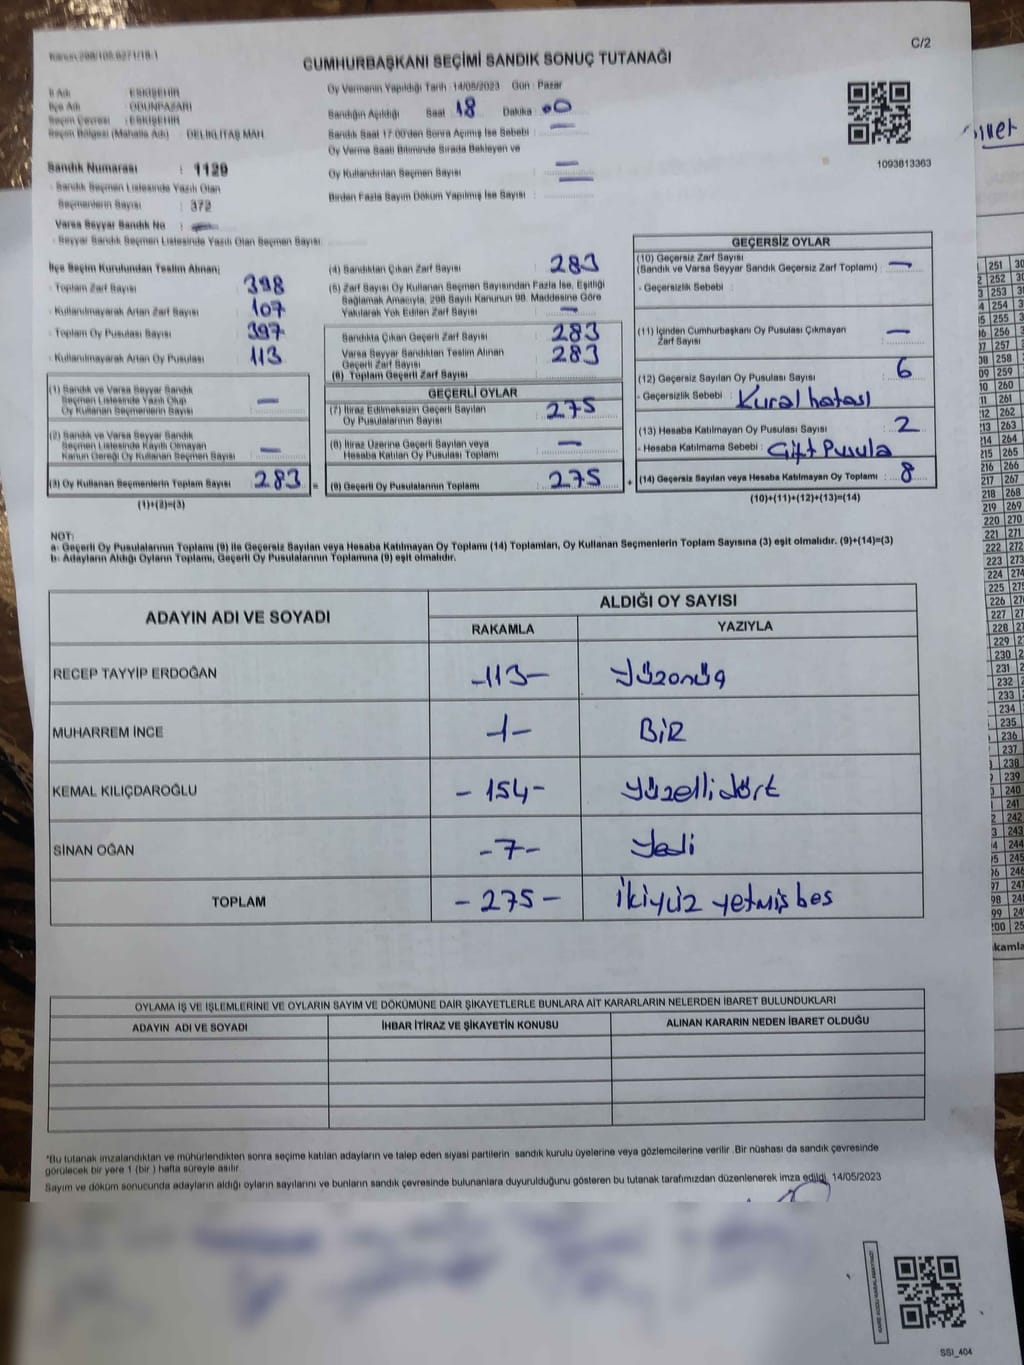 Kanun 298/105,6271/18-1
C/2
CUMHURBAŞKANI SEÇİMİ SANDIK SONUÇ TUTANAĞI
İl Adı : ESKİŞEHİR
İlçe Adı : ODUNPAZARI
Seçim Çevresi : ESKİŞEHİR
Seçim Bölgesi (Mahalle Adı) : DELİKLİTAŞ MAH
Sandık Numarası : 1129
- Sandık Seçmen Listesinde Yazılı Olan
Seçmenlerin Sayısı : 372
Varsa Seyyar Sandık No : —
- Seyyar Sandık Seçmen Listesinde Yazılı Olan Seçmen Sayısı:
Oy Vermenin Yapıldığı Tarih : 14/05/2023 Gün : Pazar
Sandığın Açıldığı Saat 18 Dakika : 00
Sandık Saat 17:00'den Sonra Açılmış İse Sebebi : —
Oy Verme Saati Bitiminde Sırada Bekleyen ve
Oy Kullandırılan Seçmen Sayısı : —
Birden Fazla Sayım Döküm Yapılmış İse Sayısı :
1093813363
İlçe Seçim Kurulundan Teslim Alınan;
- Toplam Zarf Sayısı : 398
- Kullanılmayarak Artan Zarf Sayısı : 107
- Toplam Oy Pusulası Sayısı : 397
- Kullanılmayarak Artan Oy Pusulası : 113
(1) Sandık ve Varsa Seyyar Sandık
Seçmen Listesinde Yazılı Olup
Oy Kullanan Seçmenlerin Sayısı : —
(2) Sandık ve Varsa Seyyar Sandık
Seçmen Listesinde Kayıtlı Olmayan
Kanun Gereği Oy Kullanan Seçmen Sayısı : —
(3) Oy Kullanan Seçmenlerin Toplam Sayısı : 283 =
(1)+(2)=(3)
(4) Sandıktan Çıkan Zarf Sayısı : 283
(5) Zarf Sayısı Oy Kullanan Seçmen Sayısından Fazla İse, Eşitliği
Sağlamak Amacıyla, 298 Sayılı Kanunun 98. Maddesine Göre
Yakılarak Yok Edilen Zarf Sayısı : —
Sandıkta Çıkan Geçerli Zarf Sayısı : 283
Varsa Seyyar Sandıktan Teslim Alınan
Geçerli Zarf Sayısı : 283
(6) Toplam Geçerli Zarf Sayısı :
GEÇERLİ OYLAR
(7) İtiraz Edilmeksizin Geçerli Sayılan
Oy Pusulalarının Sayısı : 275
(8) İtiraz Üzerine Geçerli Sayılan veya
Hesaba Katılan Oy Pusulası Toplamı : —
(9) Geçerli Oy Pusulalarının Toplamı : 275 +
GEÇERSİZ OYLAR
(10) Geçersiz Zarf Sayısı
(Sandık ve Varsa Seyyar Sandık Geçersiz Zarf Toplamı) : —
- Geçersizlik Sebebi :
(11) İçinden Cumhurbaşkanı Oy Pusulası Çıkmayan
Zarf Sayısı : —
(12) Geçersiz Sayılan Oy Pusulası Sayısı : 6
- Geçersizlik Sebebi : Kural hatası
(13) Hesaba Katılmayan Oy Pusulası Sayısı : 2
- Hesaba Katılmama Sebebi : Çift Pusula
(14) Geçersiz Sayılan veya Hesaba Katılmayan Oy Toplamı : 8
(10)+(11)+(12)+(13)=(14)
NOT:
a- Geçerli Oy Pusulalarının Toplamı (9) ile Geçersiz Sayılan veya Hesaba Katılmayan Oy Toplamı (14) Toplamları, Oy Kullanan Seçmenlerin Toplam Sayısına (3) eşit olmalıdır. (9)+(14)=(3)
b- Adayların Aldığı Oyların Toplamı, Geçerli Oy Pusulalarının Toplamına (9) eşit olmalıdır.
ADAYIN ADI VE SOYADI
ALDIĞI OY SAYISI
RAKAMLA YAZIYLA
RECEP TAYYİP ERDOĞAN -113- Yüzonüç
MUHARREM İNCE -1- BİR
KEMAL KILIÇDAROĞLU -154- Yüzellidört
SİNAN OĞAN -7- Yedi
TOPLAM -275- İkiyüz yetmiş bes
OYLAMA İŞ VE İŞLEMLERİNE VE OYLARIN SAYIM VE DÖKÜMÜNE DAİR ŞİKAYETLERLE BUNLARA AİT KARARLARIN NELERDEN İBARET BULUNDUKLARI
ADAYIN ADI VE SOYADI İHBAR İTİRAZ VE ŞİKAYETİN KONUSU ALINAN KARARIN NEDEN İBARET OLDUĞU
*Bu tutanak imzalandıktan ve mühürlendikten sonra seçime katılan adayların ve talep eden siyasi partilerin sandık kurulu üyelerine veya gözlemcilerine verilir .Bir nüshası da sandık çevresinde
görülecek bir yere 1 (bir ) hafta süreyle asılır.
Sayım ve döküm sonucunda adayların aldığı oyların sayılarını ve bunların sandık çevresinde bulunanlara duyurulduğunu gösteren bu tutanak tarafımızdan düzenlenerek imza edildi. 14/05/2023
KARE KODU KARALAMAYINIZ!
SSI_404